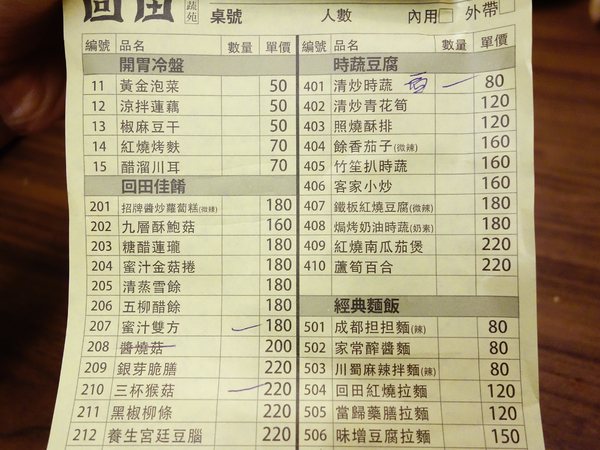 回田 蔬苑 桌號 人數 內用□ 外帶□
編號 品名 數量 單價
開胃冷盤
11 黃金泡菜 50
12 涼拌蓮藕 50
13 椒麻豆干 50
14 紅燒烤麩 70
15 醋溜川耳 70
回田佳餚
201 招牌醬炒蘿蔔糕(微辣) 180
202 九層酥鮑菇 160
203 糖醋蓮瓏 180
204 蜜汁金菇捲 180
205 清蒸雪餘 180
206 五柳醋餘 180
207 蜜汁雙方 180
208 醬燒菇 200
209 銀芽脆膳 220
210 三杯猴菇 220
211 黑椒柳條 220
212 養生宮廷豆腦 220
編號 品名 數量 單價
時蔬豆腐
401 清炒時蔬 80
402 清炒青花筍 120
403 照燒酥排 120
404 餘香茄子(微辣) 160
405 竹笙扒時蔬 160
406 客家小炒 160
407 鐵板紅燒豆腐(微辣) 180
408 焗烤奶油時蔬(奶素) 180
409 紅燒南瓜茄煲 220
410 蘆筍百合 220
經典麵飯
501 成都担担麵(辣) 80
502 家常醡醬麵 80
503 川蜀麻辣拌麵(辣) 80
504 回田紅燒拉麵 120
505 當歸藥膳拉麵 120
506 味增豆腐拉麵 150